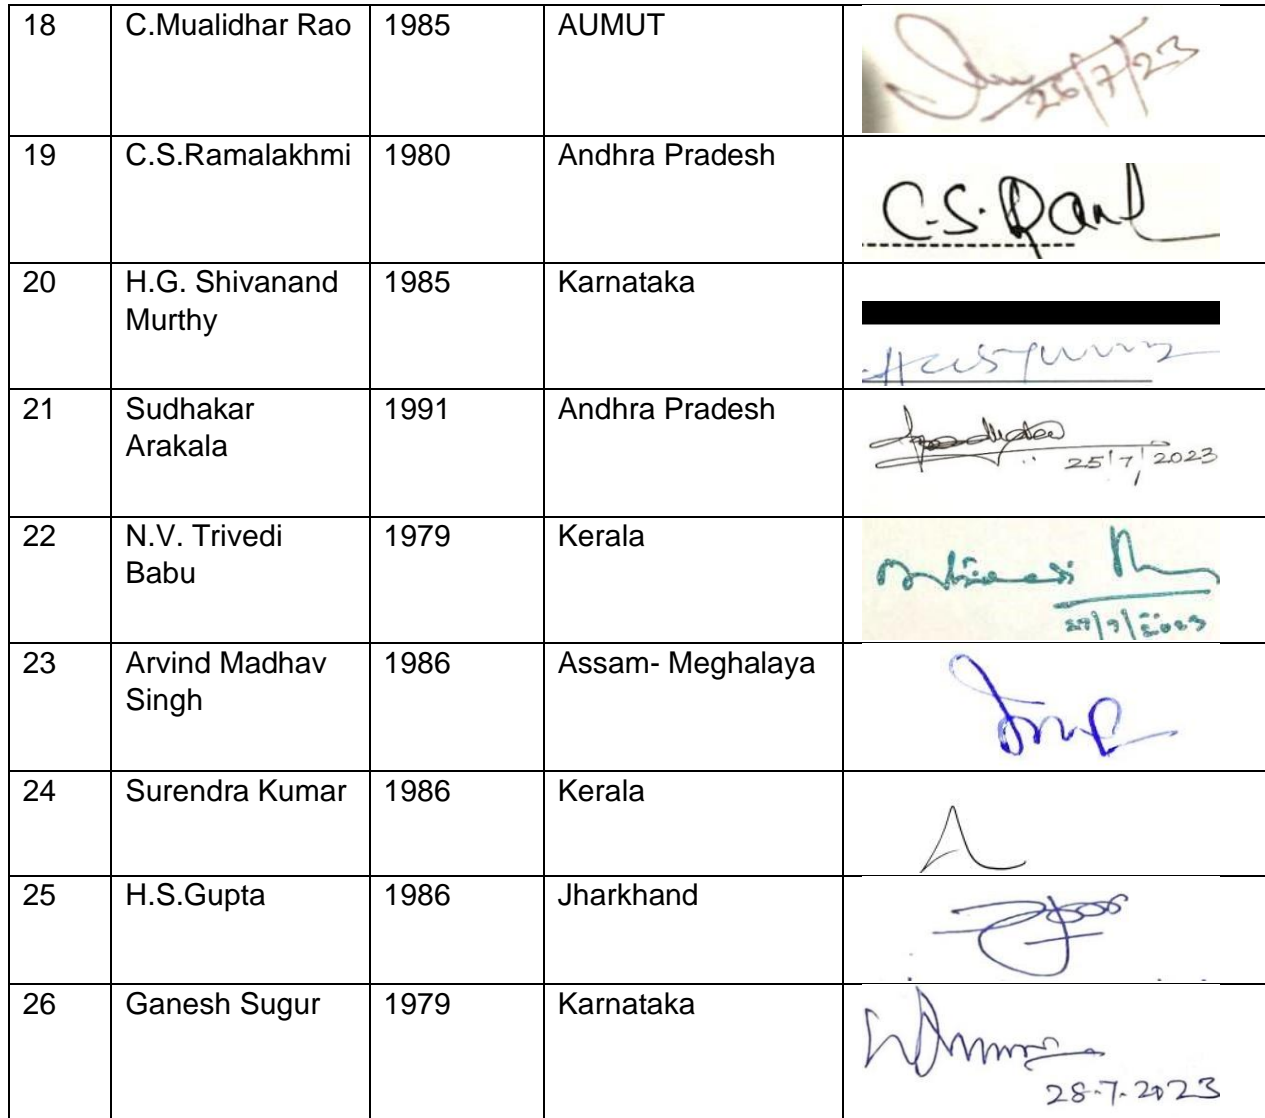 18 C.Mualidhar Rao 1985 AUMUT
26/7/23
19 C.S.Ramalakhmi 1980 Andhra Pradesh
C.S.
20 H.G. Shivanand 1985 Karnataka
Murthy
21 Sudhakar 1991 Andhra Pradesh
Arakala
25/7/2023
22 N.V. Trivedi 1979 Kerala
Babu
27/7/2023
23 Arvind Madhav 1986 Assam- Meghalaya
Singh
24 Surendra Kumar 1986 Kerala
25 H.S.Gupta 1986 Jharkhand
26 Ganesh Sugur 1979 Karnataka
28-7-2023